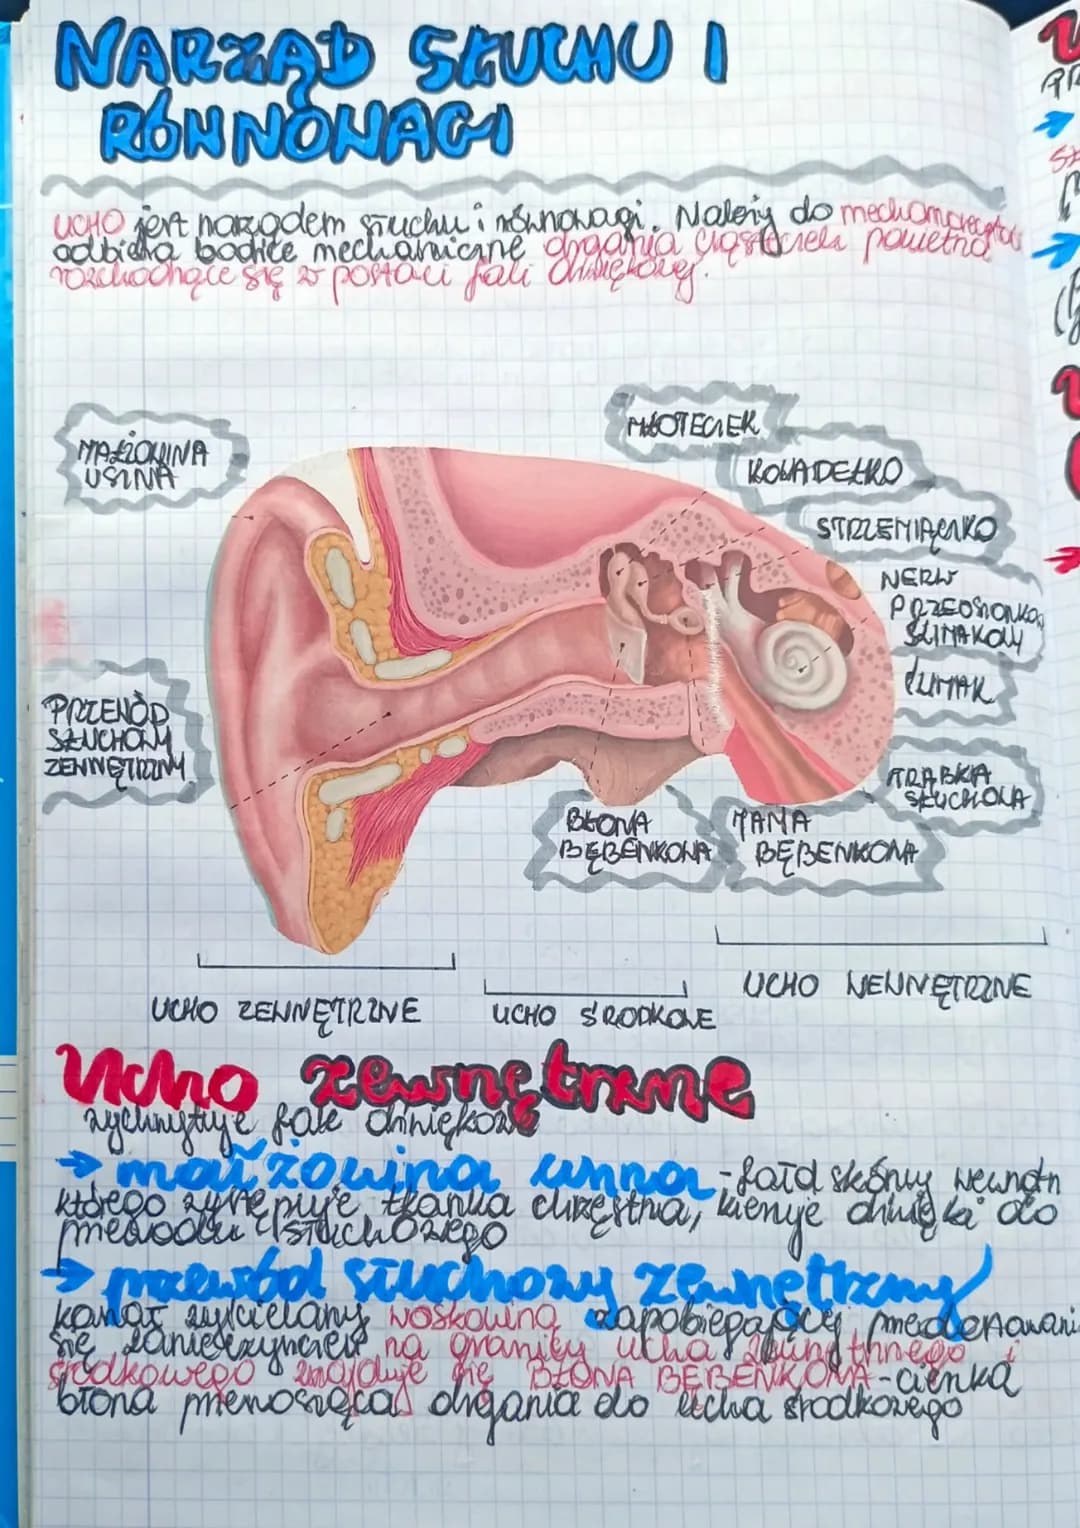 NARZĄD SŁUCHU I
RÓWNOWAGI
UCHO jest narządem słuchu i równowagi. Należy do mechanoreceptorów
odbiera bodźce mechaniczne drgania cząsteczek powietrza
rozchodzące się w postaci fali dźwiękowej.
MAŁŻOWINA
USZNA
MŁOTECZEK
KOWADEŁKO
STRZEMIĄCZKO
NERW
PRZEDSIONKOWO
ŚLIMAKOWY
ŚLIMAK
PRZEWÓD
SŁUCHOWY
ZEWNĘTRZNY
TRĄBKA
SŁUCHOWA
BŁONA
BĘBENKOWA
JAMA
BĘBENKOWA
UCHO ZEWNĘTRZNE
UCHO ŚRODKOWE
UCHO WEWNĘTRZNE
Ucho zewnętrzne
wychwytuje fale dźwiękowe
→ małżowina uszna - fałd skórny wewnątrz
którego występuje tkanka chrzęstna, kieruje dźwięki do
przewodu słuchowego
→ przewód słuchowy zewnętrzny
kanał wyścielany woskowiną zapobiegającej przedostawaniu
się zanieczyszczeń na granicy ucha zewnętrznego i
środkowego znajduje się BŁONA BĘBENKOWA - cienka
błona przenosząca drgania do ucha środkowego